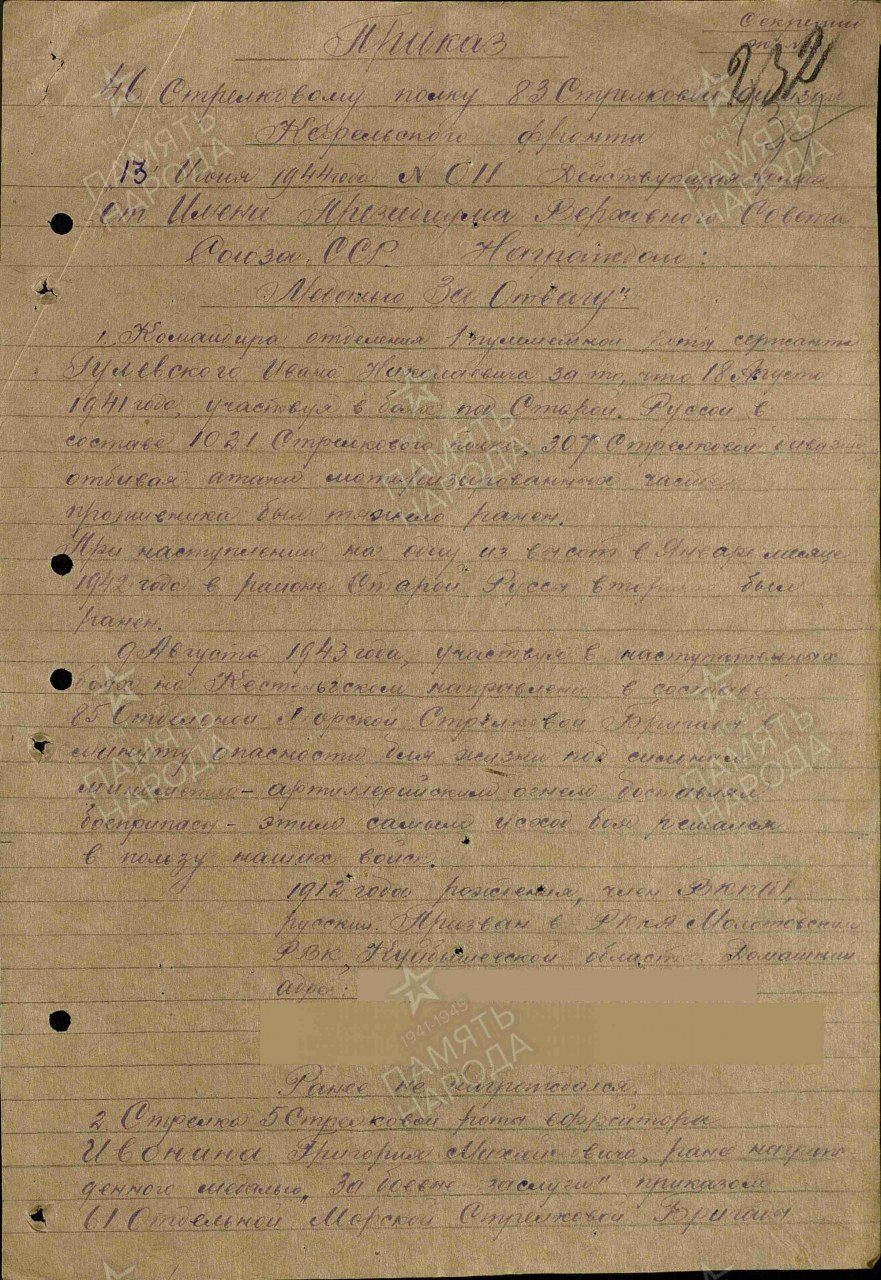 Приказ
46 Стрелковому полку 83 Стрелковой
Карельского фронта
"13" Июня 1944 года N 011 Действующая
От Имени Президиума Верховного Совета
Союза ССР Награждаю:
Медалью "За Отвагу"
1. Командира отделения 1 пулеметной роты сержанта
Гулевского Ивана Николаевича за то, что 18 Августа
1941 года, участвуя в боях под Старой Руссой в
составе 1021 Стрелкового полка, 307 Стрелковой
отбивая атаки частей
противника был тяжело ранен.
При наступлении на одну из высот в Январе месяце
1942 года в районе Старой Русса вторично был
ранен.
9 Августа 1943 года, участвуя в наступательных
боях на Кестеньгском направлении в составе
85 Отдельной Морской Стрелковой Бригады в
минуту опасности для жизни под сильным
минометно-артиллерийским огнем доставлял
боеприпасы - этим самым исход боя решался
в пользу наших войск.
1912 года рождения, член ВКП(б),
русский. Призван в РККА Молотовским
РВК, Куйбышевской области. Домашний
адрес:
Ранее не награждался.
2. Стрелка 5 Стрелковой роты ефрейтора
Ивонина Григория ранее
медалью "За боевые заслуги" приказом
61 Отдельной Морской Стрелковой Бригады
ПАМЯТЬ НАРОДА
1941-1945